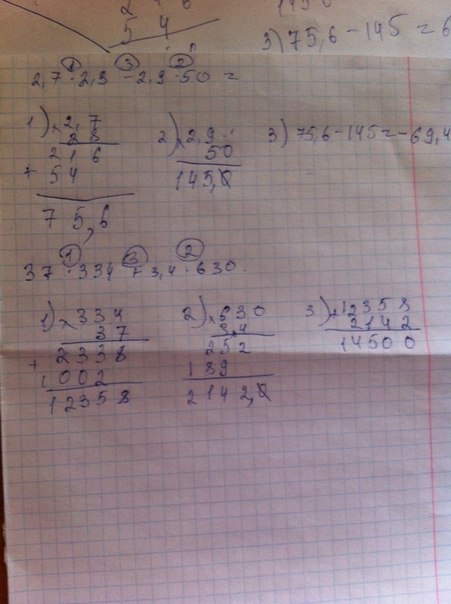 5 4
3) 75,6 - 145 = 6
2,7 · 2,8 - 2,9 · 50 =
1 3 2
1) × 2,7
28
216
+ 54
75,6
2) × 2,9
50
145,0
3) 75,6 - 145 = -69,4
37 · 334 + 3,4 · 630
1 3 2
1) × 334
37
+ 2338
1002
12358
2) × 630
3,4
252
189
2142,0
3) + 12358
2142
14500